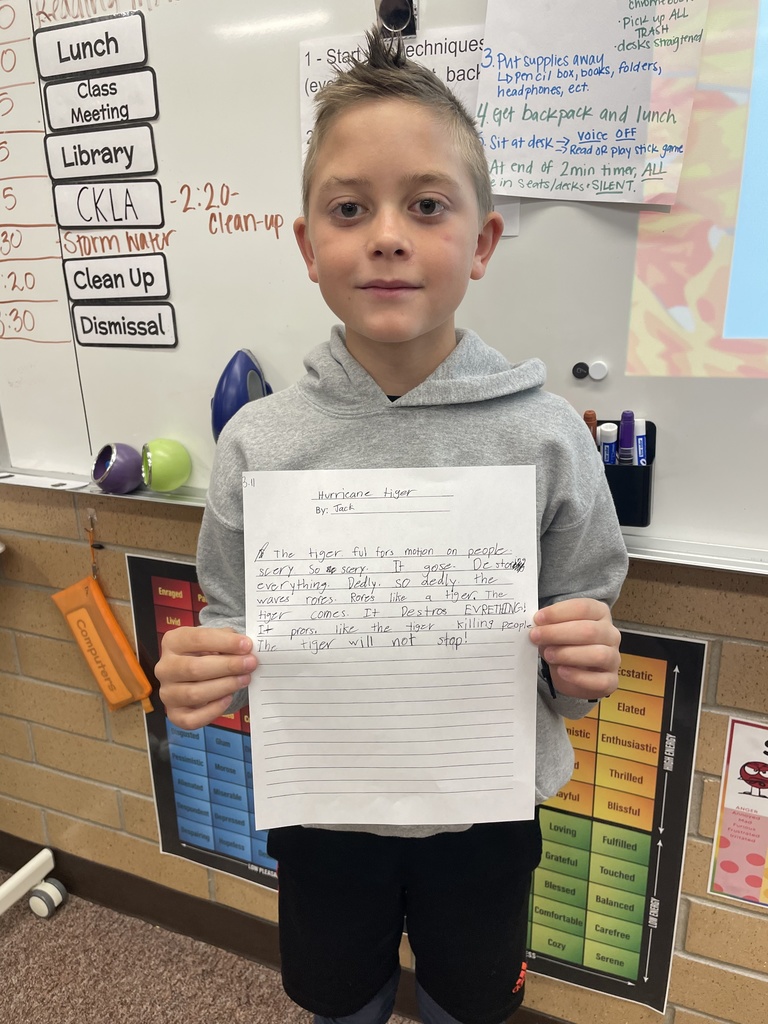 Lunch
Class
Meeting
Library
CKLA
-2:20-
clean-up
Storm Water
Clean Up
Dismissal
:20
:30
1 - Start
techniques
back
chromebook
·Pick up ALL
TRASH
·desks straigtened
3. Put supplies away
↳ pencil box, books, folders,
headphones, ect.
4. Get backpack and lunch
Sit at desk → voice OFF
→ Read OR play stick game
At end of 2min timer, ALL
in seats/decks + SILENT.
3.11
Hurricane tiger
By: Jack
The tiger ful fors motion on people
scery So scery. It gose. De
everything. Dedly. so dedly the
waves rores. Rores like a tiger. The
tiger comes. It Destros EVRETHING!
It prers. like the tiger killing people
The tiger will not stop!
Computers
Enraged
Livid
Disgusted
Glum
Pessimistic
Morose
Alienated
Miserable
Despondent
Depressed
Despairing
Hopeless
Ecstatic
Elated
Enthusiastic
Thrilled
Blissful
Loving
Fulfilled
Grateful
Touched
Blessed
Balanced
Comfortable
Carefree
Cozy
Serene
HIGH ENERGY
LOW ENERGY
ANGER